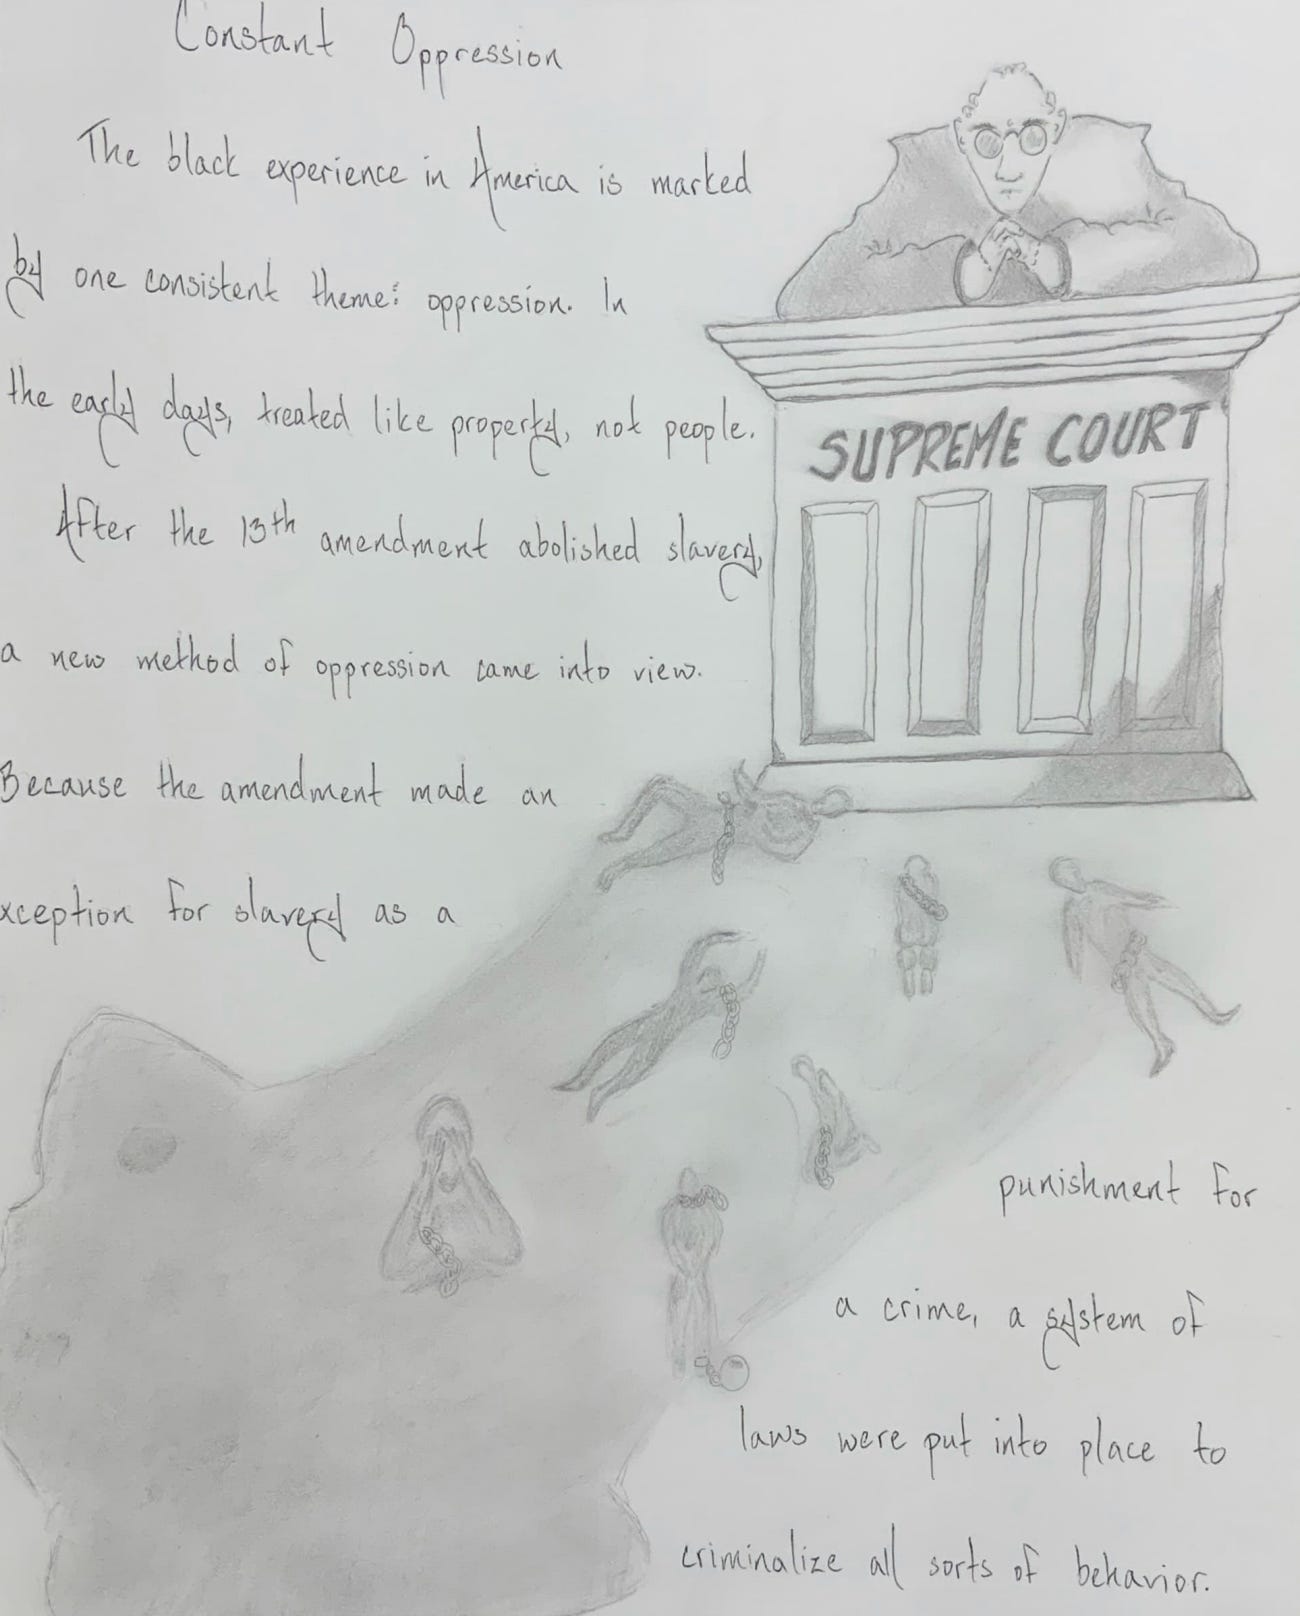 Constant Oppression
The black experience in America is marked
by one consistent theme: oppression. In
the early days, treated like property, not people.
After the 13th amendment abolished slavery,
a new method of oppression came into view.
Because the amendment made an
xception for slavery as a
SUPREME COURT
punishment for
a crime, a system of
laws were put into place to
criminalize all sorts of behavior.